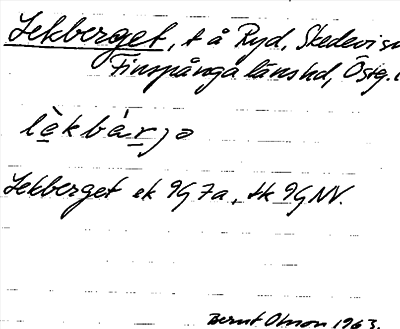 Lekberget, t å Ryd, Skedevi sn
Finspånga länshd, Östg.l
lèkbárjə
Lekberget ek 9G 7a, tk 9G NV.
Bernt Olsson 1963.